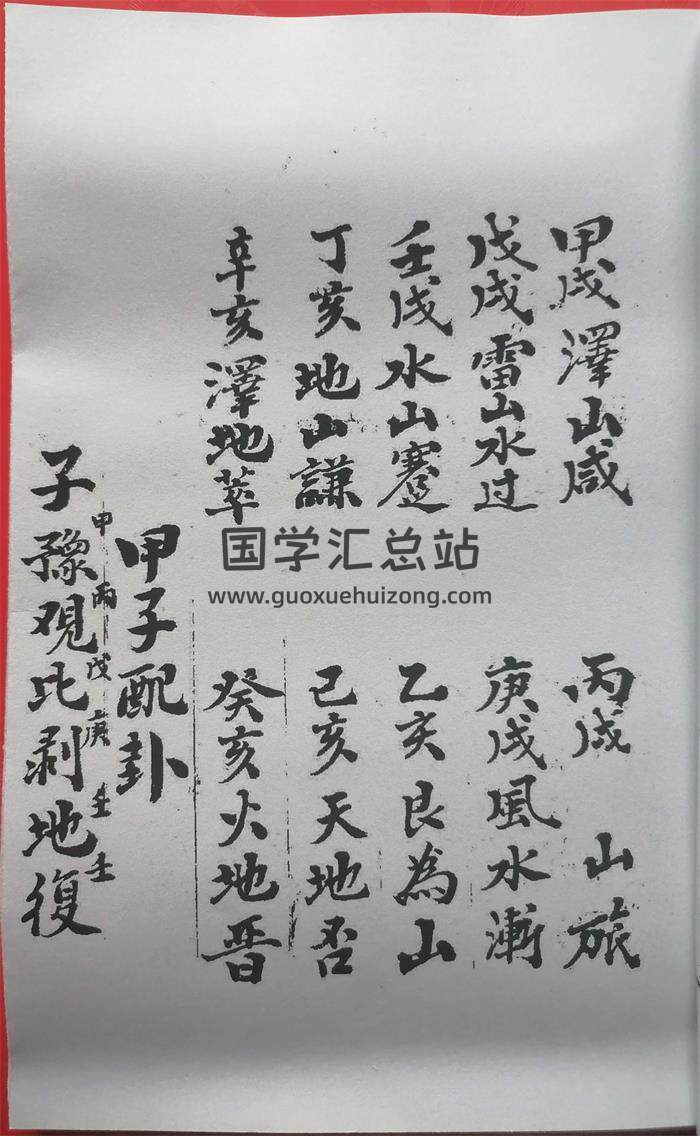 甲戌澤山咸 丙戌 山旅
戊戌雷山水过 庚戌風水漸
壬戌水山蹇 乙亥艮為山
丁亥地山謙 己亥天地否
辛亥澤地萃 癸亥火地晋
甲子配卦
甲丙戊庚壬壬
子豫观比剥地復
国学汇总站
www.guoxuehuizong.com